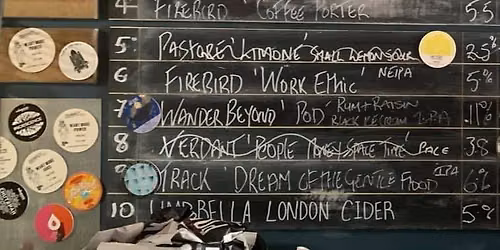 4 FIREBIRD 'COFFEE PORTER 5.5
5 PASTORE 'LIMONE' SMALL LEMON SOUR 2.5%
6 FIREBIRD 'WORK ETHIC' NEIPA 5%
7 WANDER BEYOND 'POD' RUM + RAISIN
BLACK ICE CREAM IPA 11%
8 VERDANT 'PEOPLE TIME' PALE 3.8
9 TRACK 'DREAM OF THE GENTLE FLOOD' IPA 6%
10 UMBRELLA LONDON CIDER 5%